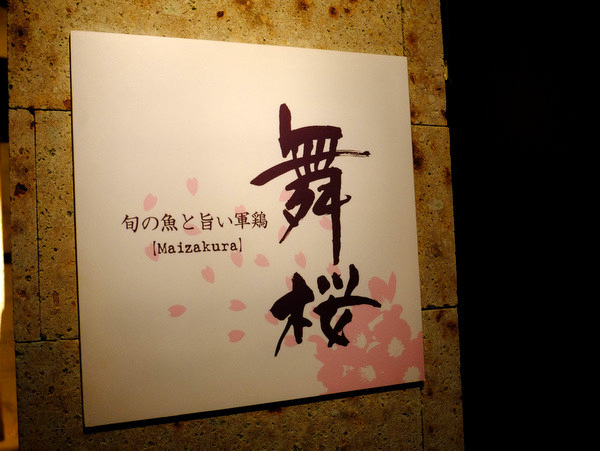 舞桜
旬の魚と旨い軍鶏
【Maizakura】